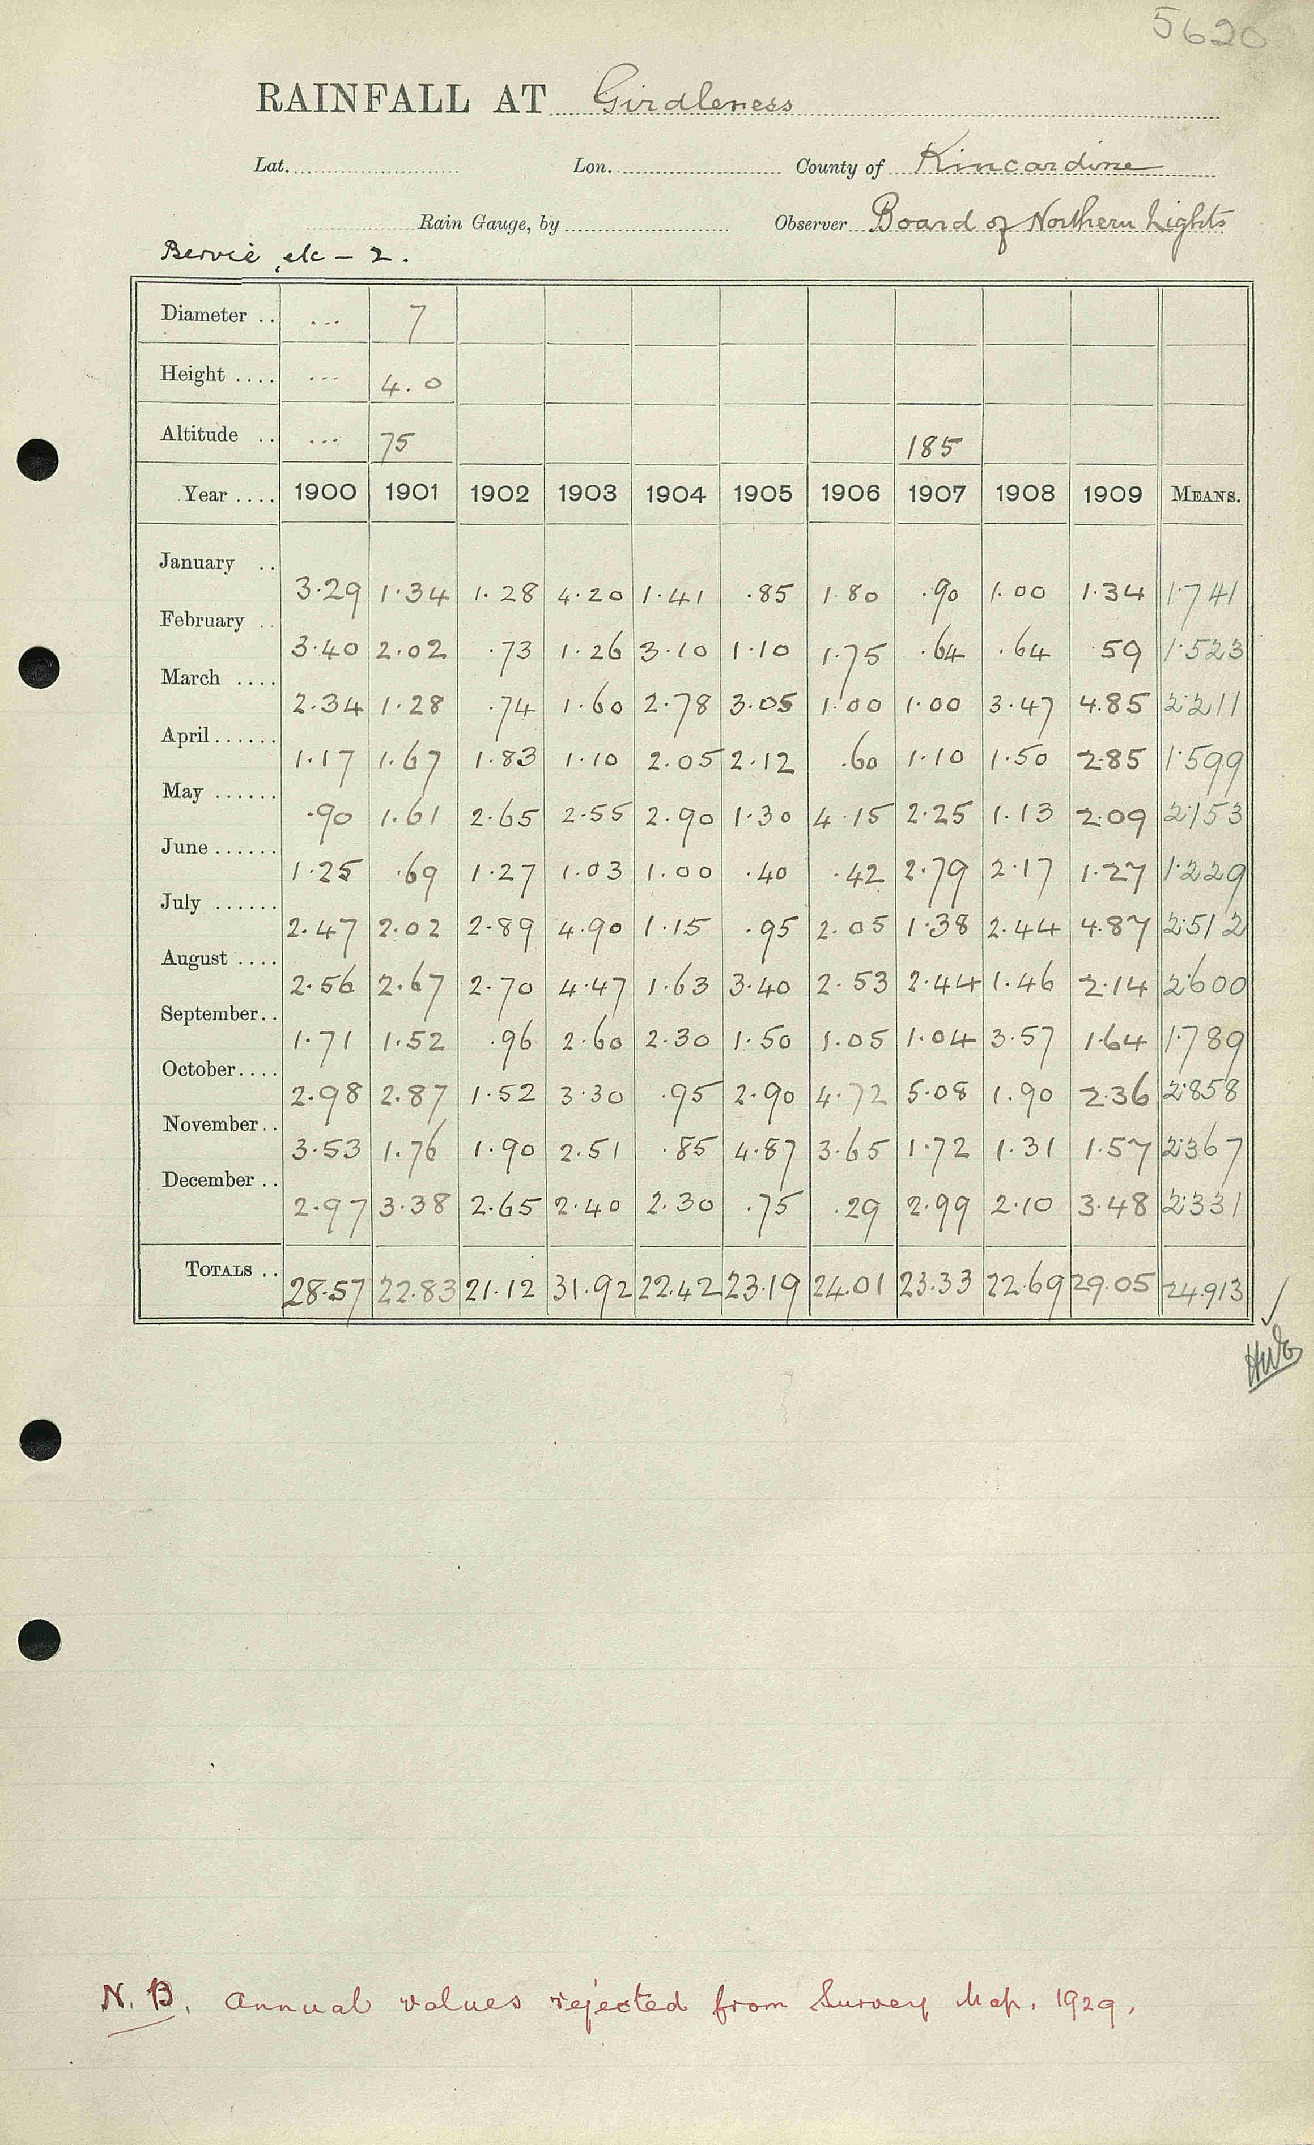 5620
RAINFALL AT Girdleness
Lat. Lon. County of Kincardine
Rain Gauge, by Observer Board of Northern Lights
Bervie etc - 2.
Diameter .. ... 7
Height .... ... 4.0
Altitude .. ... 75 185
Year .... 1900 1901 1902 1903 1904 1905 1906 1907 1908 1909 MEANS.
January .. 3.29 1.34 1.28 4.20 1.41 .85 1.80 .90 1.00 1.34 1.741
February .. 3.40 2.02 .73 1.26 3.10 1.10 1.75 .64 .64 59 1.523
March .... 2.34 1.28 .74 1.60 2.78 3.05 1.00 1.00 3.47 4.85 2.211
April...... 1.17 1.67 1.83 1.10 2.05 2.12 .60 1.10 1.50 2.85 1.599
May ...... .90 1.61 2.65 2.55 2.90 1.30 4.15 2.25 1.13 2.09 2.153
June...... 1.25 .69 1.27 1.03 1.00 .40 .42 2.79 2.17 1.27 1.229
July ...... 2.47 2.02 2.89 4.90 1.15 .95 2.05 1.38 2.44 4.87 2.512
August .... 2.56 2.67 2.70 4.47 1.63 3.40 2.53 2.44 1.46 2.14 2.600
September.. 1.71 1.52 .96 2.60 2.30 1.50 1.05 1.04 3.57 1.64 1.789
October.... 2.98 2.87 1.52 3.30 .95 2.90 4.72 5.08 1.90 2.36 2.858
November.. 3.53 1.76 1.90 2.51 .85 4.87 3.65 1.72 1.31 1.57 2.367
December .. 2.97 3.38 2.65 2.40 2.30 .75 .29 2.99 2.10 3.48 2.331
TOTALS .. 28.57 22.83 21.12 31.92 22.42 23.19 24.01 23.33 22.69 29.05 24.913
N.B. Annual values rejected from Survey Map. 1929.